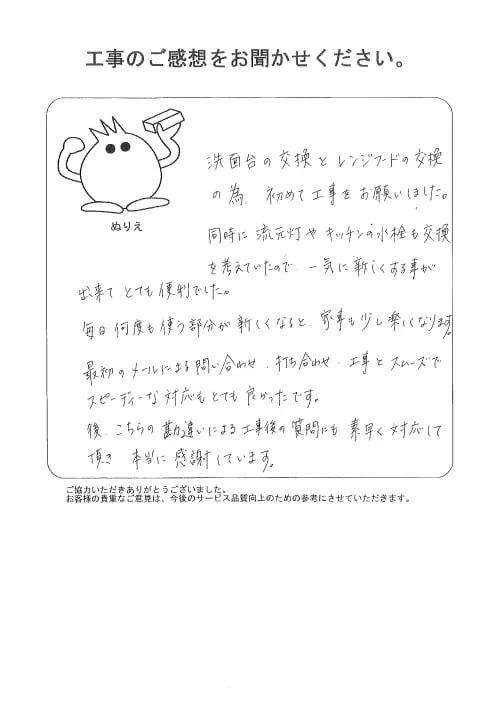 工事のご感想をお聞かせください。
ぬりえ
洗面台の交換とレンジフードの交換
の為、初めて工事をお願いしました。
同時に流元灯やキッチンの水栓も交換
を考えていたので、一気に新しくする事が
出来てとても便利でした。
毎日何度も使う部分が新しくなると、家事も少し楽しくなります。
最初のメールによる問い合わせ、打ち合わせ、工事とスムーズで
スピーディーな対応もとても良かったです。
後、こちらの勘違いによる工事後の質問にも素早く対応して
頂き本当に感謝しています。
ご協力いただきありがとうございました。
お客様の貴重なご意見は、今後のサービス品質向上のための参考にさせていただきます。